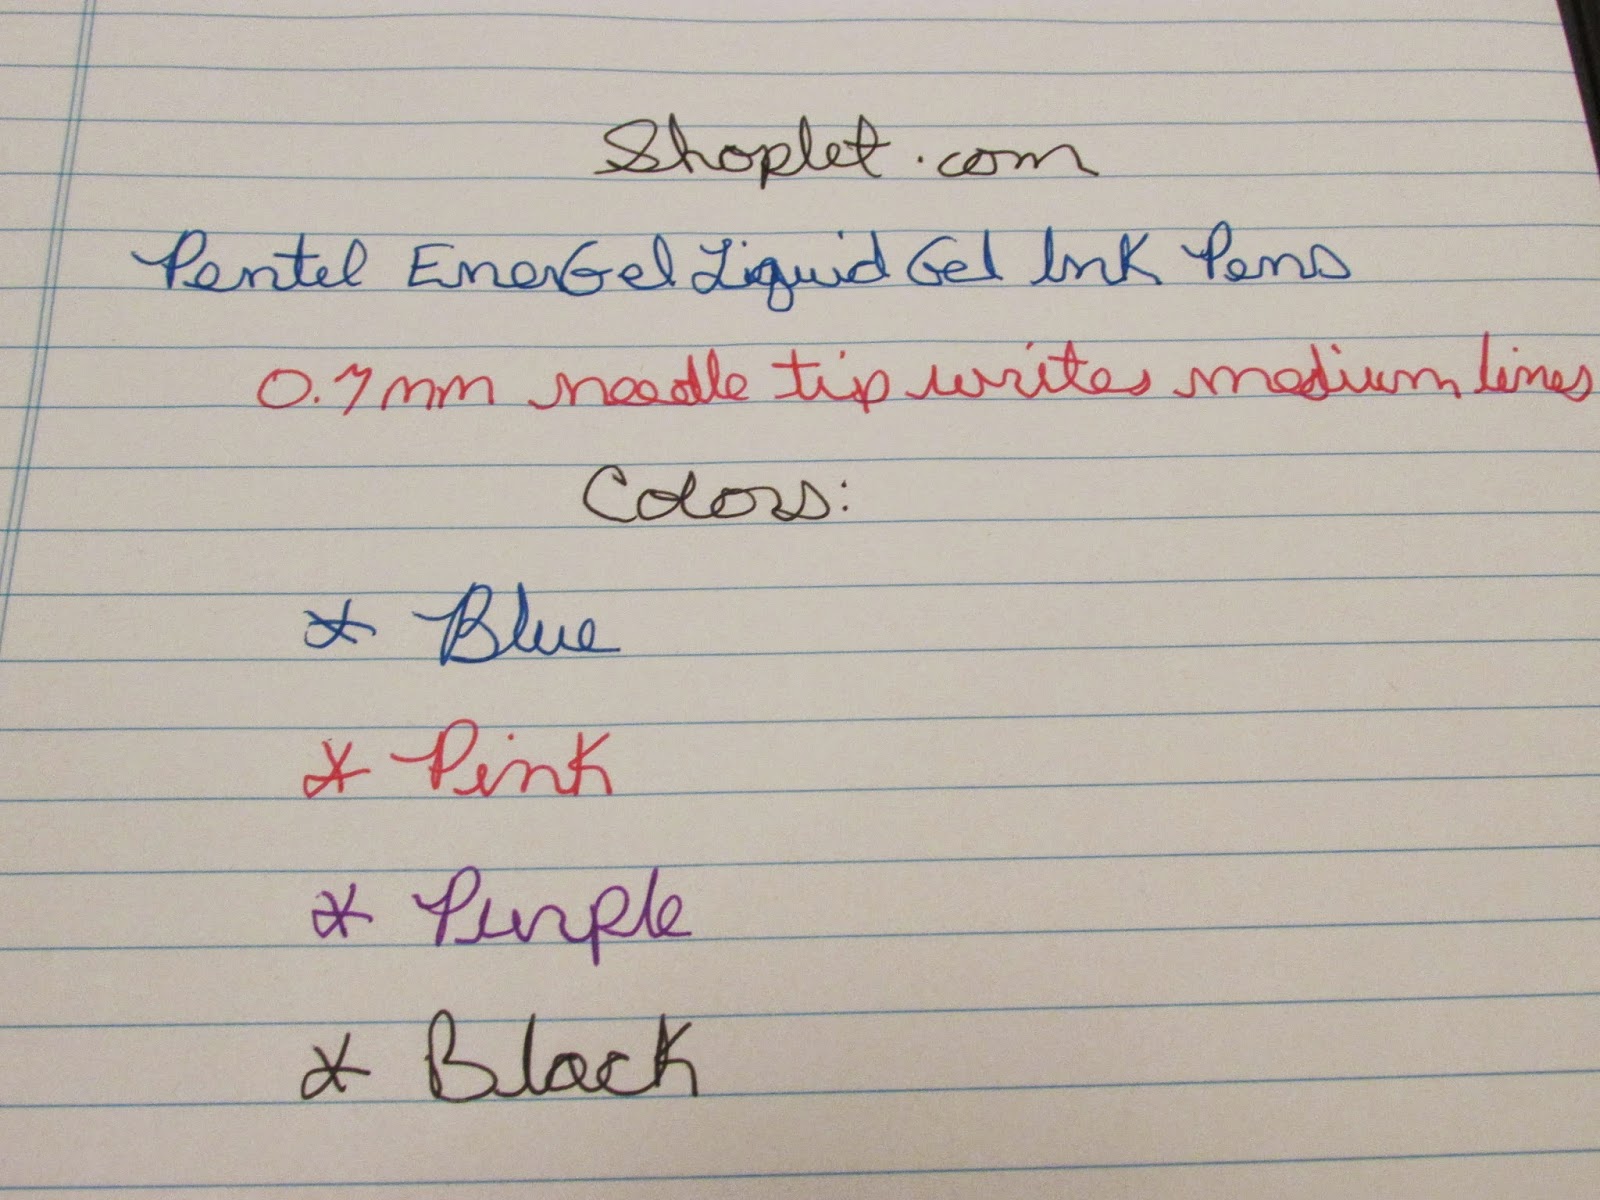 Shoplet.com
Pentel EnerGel Liquid Gel Ink Pens
0.7mm needle tip writes medium lines
Colors:
* Blue
* Pink
* Purple
* Black